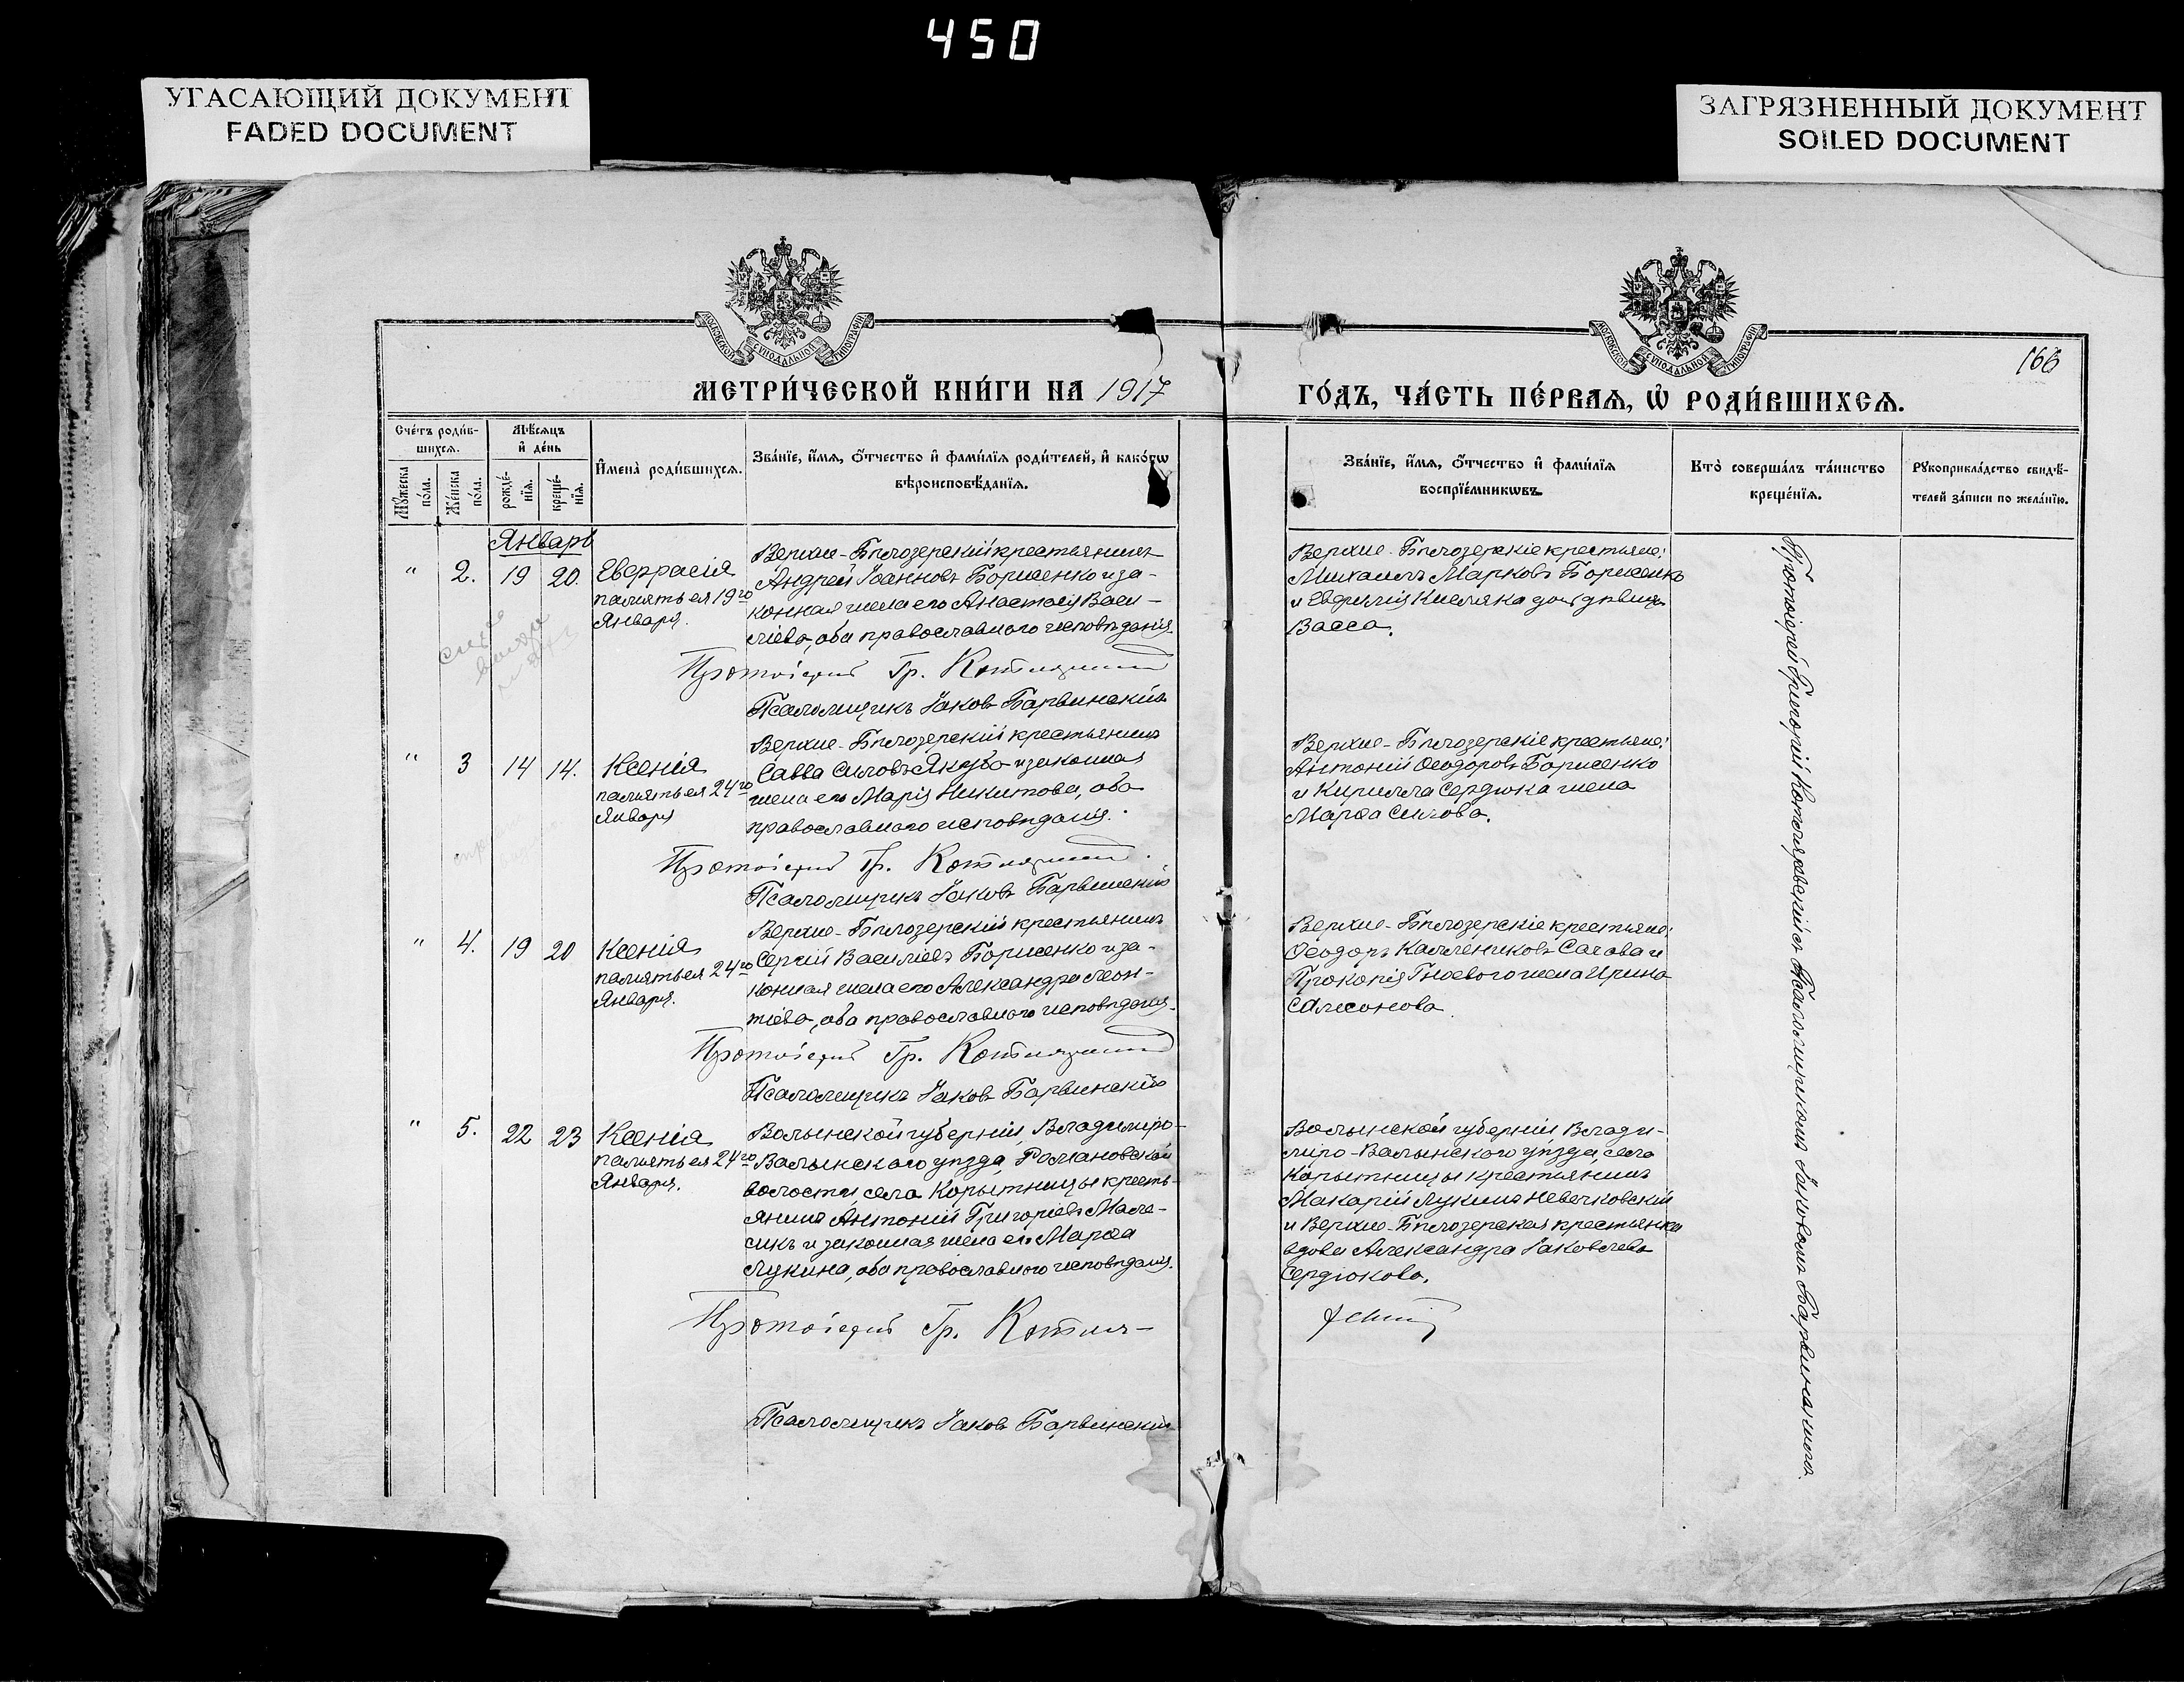 450
УГАСАЮЩИЙ ДОКУМЕНТ
FADED DOCUMENT
ЗАГРЯЗНЕННЫЙ ДОКУМЕНТ
SOILED DOCUMENT
МОСКОВСКОЙ СѴНОДАЛЬНОЙ ТИПОГРАФІИ
МОСКОВСКОЙ СѴНОДАЛЬНОЙ ТИПОГРАФІИ
166
МЕТРИ́ЧЕСКОЙ КНИ́ГИ НА 1917
ГО́ДЪ, ЧА́СТЬ ПЕ́РВАѦ, Ѡ҆ РОДИ́ВШИХСѦ.
Сче́тъ роди́в-
шихсѧ.
Мꙋ́жеска
по́ла.
Же́нска
по́ла.
Мѣ́сѧцъ
и҆ де́нь
рожде́-
нїѧ.
креще́-
нїѧ.
И҆мена̀ роди́вшихсѧ.
Зва́нїе, и҆́мѧ, ѻ҆́тчество и҆ фами́лїѧ роди́телей, и҆ како́гѡ
вѣроисповѣ́данїѧ.
Зва́нїе, и҆́мѧ, ѻ҆́тчество и҆ фами́лїѧ
воспрїе́мникѡвъ.
Кто̀ соверша́лъ та́инство
креще́нїѧ.
Рꙋкоприкла́дство свидѣ́-
телей за́писи по жела́нїю.
Январь
" 2. 19 20. Евфрасія
память ея 19го
Января.
Верхне-Бѣлозерскій крестьянинъ
Андрей Іоанновъ Борисенко и за-
конная жена его Анастасія Васи-
ліева, оба православнаго исповѣданія.
Протоіерей Гр. Котляревскій
Псаломщикъ Іаковъ Барвинскій
Верхне-Бѣлозерскіе крестьяне:
Михаилъ Марковъ Борисенко
и Евфимія Кисляка дочь дѣвица
Васса.
" 3 14 14. Ксенія
память ея 24го
Января
Верхне-Бѣлозерскій крестьянинъ
Савва Силовъ Якуба и законная
жена его Марія Никитова, оба
православнаго исповѣданія.
Протоіерей Гр. Котляревскій
Псаломщикъ Іаковъ Барвинскій
Верхне-Бѣлозерскіе крестьяне:
Антоній Ѳеодоровъ Борисенко
и Кирилла Сердюка жена
Марѳа Силова.
" 4. 19 20 Ксенія
память ея 24го
Января.
Верхне-Бѣлозерскій крестьянинъ
Сергій Василіевъ Борисенко и за-
конная жена его Александра Леон-
тіева, оба православнаго исповѣданія.
Протоіерей Гр. Котляревскій
Псаломщикъ Іаковъ Барвинскій
Верхне-Бѣлозерскіе крестьяне:
Ѳеодоръ Каллениковъ и
Прокопія Гноеваго жена Ирина
Самсонова
" 5. 22 23 Ксенія
память ея 24го
Января.
Волынской губерніи, Владиміро-
Волынскаго уѣзда, Романовской
волости села Корытницы кресть-
янинъ Антоній Григоріевъ Мале-
сикъ и законная жена его Марѳа
Лукина, оба православнаго исповѣданія.
Протоіерей Гр. Котля-
ревскій
Псаломщикъ Іаковъ Барвинскій
Волынской губерніи Влади-
міро-Волынскаго уѣзда, села
Корытницы крестьянинъ
Макарій Лукинъ Невечковскій
и Верхне-Бѣлозерская крестьянка
вдова Александра Іаковлева
Сердюкова.
Протоіерей Григорій Котляревскій съ Псаломщикомъ Іаковомъ Барвинскимъ.